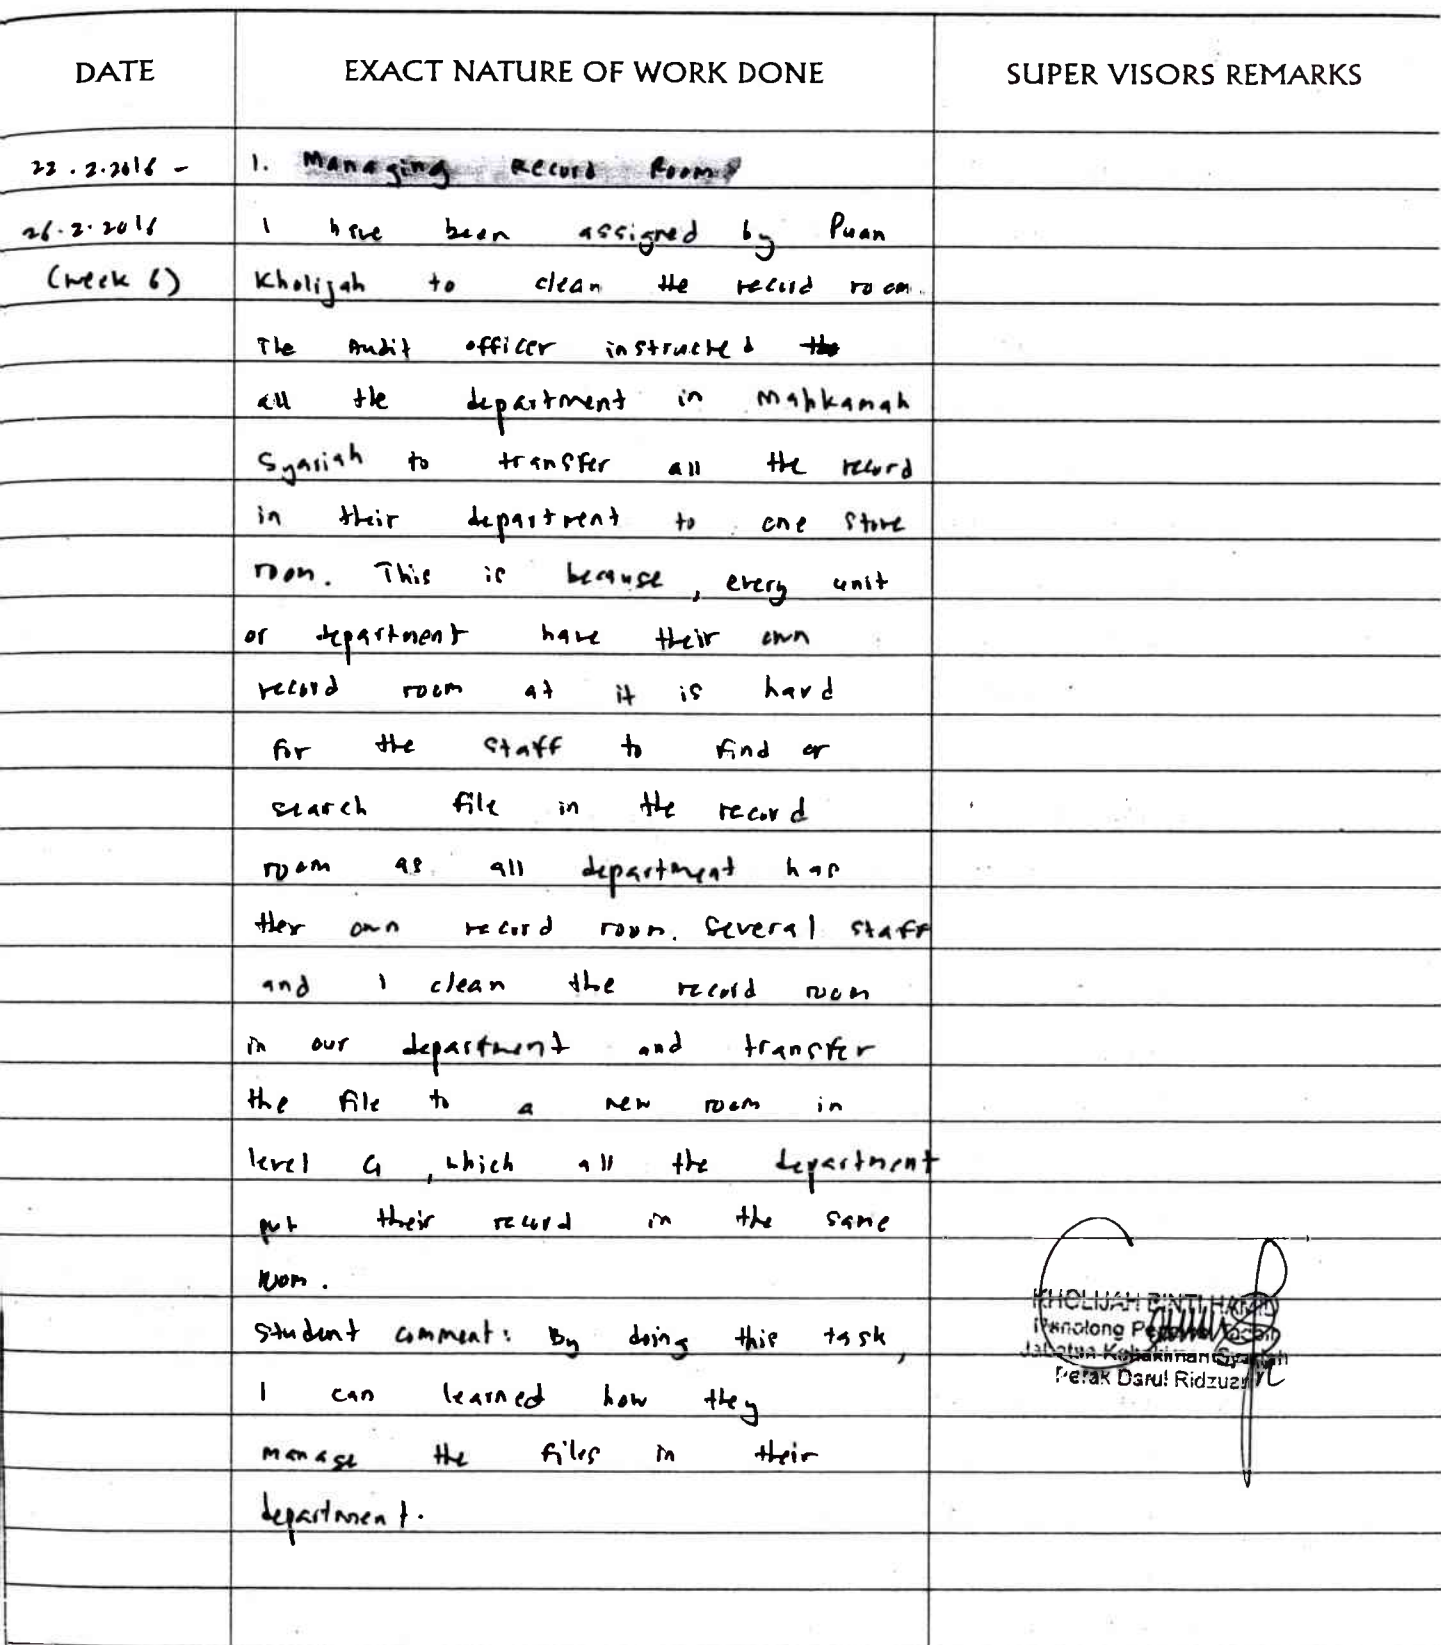 DATE EXACT NATURE OF WORK DONE SUPER VISORS REMARKS
22.2.2016 - 1. Managing Record Room
26.2.2016 I have been assigned by Puan
(week 6) Kholijah to clean the record room.
The Audit officer instructed the
all the department in Mahkamah
Syariah to transfer all the record
in their department to one store
room. This is because, every unit
or department have their own
record room at it is hard
for the staff to find or
search file in the record
room as all department has
ther own record room. Several staff
and I clean the record room
in our department and transfer
the file to a new room in
level G, which all the department
put their record in the same
room.
Student comment: By doing this task,
I can learned how they
manage the files in their
department.
KHOLIJAH BINTI HAMID
Penolong
Jabatan Kehakiman Syariah
Perak Darul Ridzuan